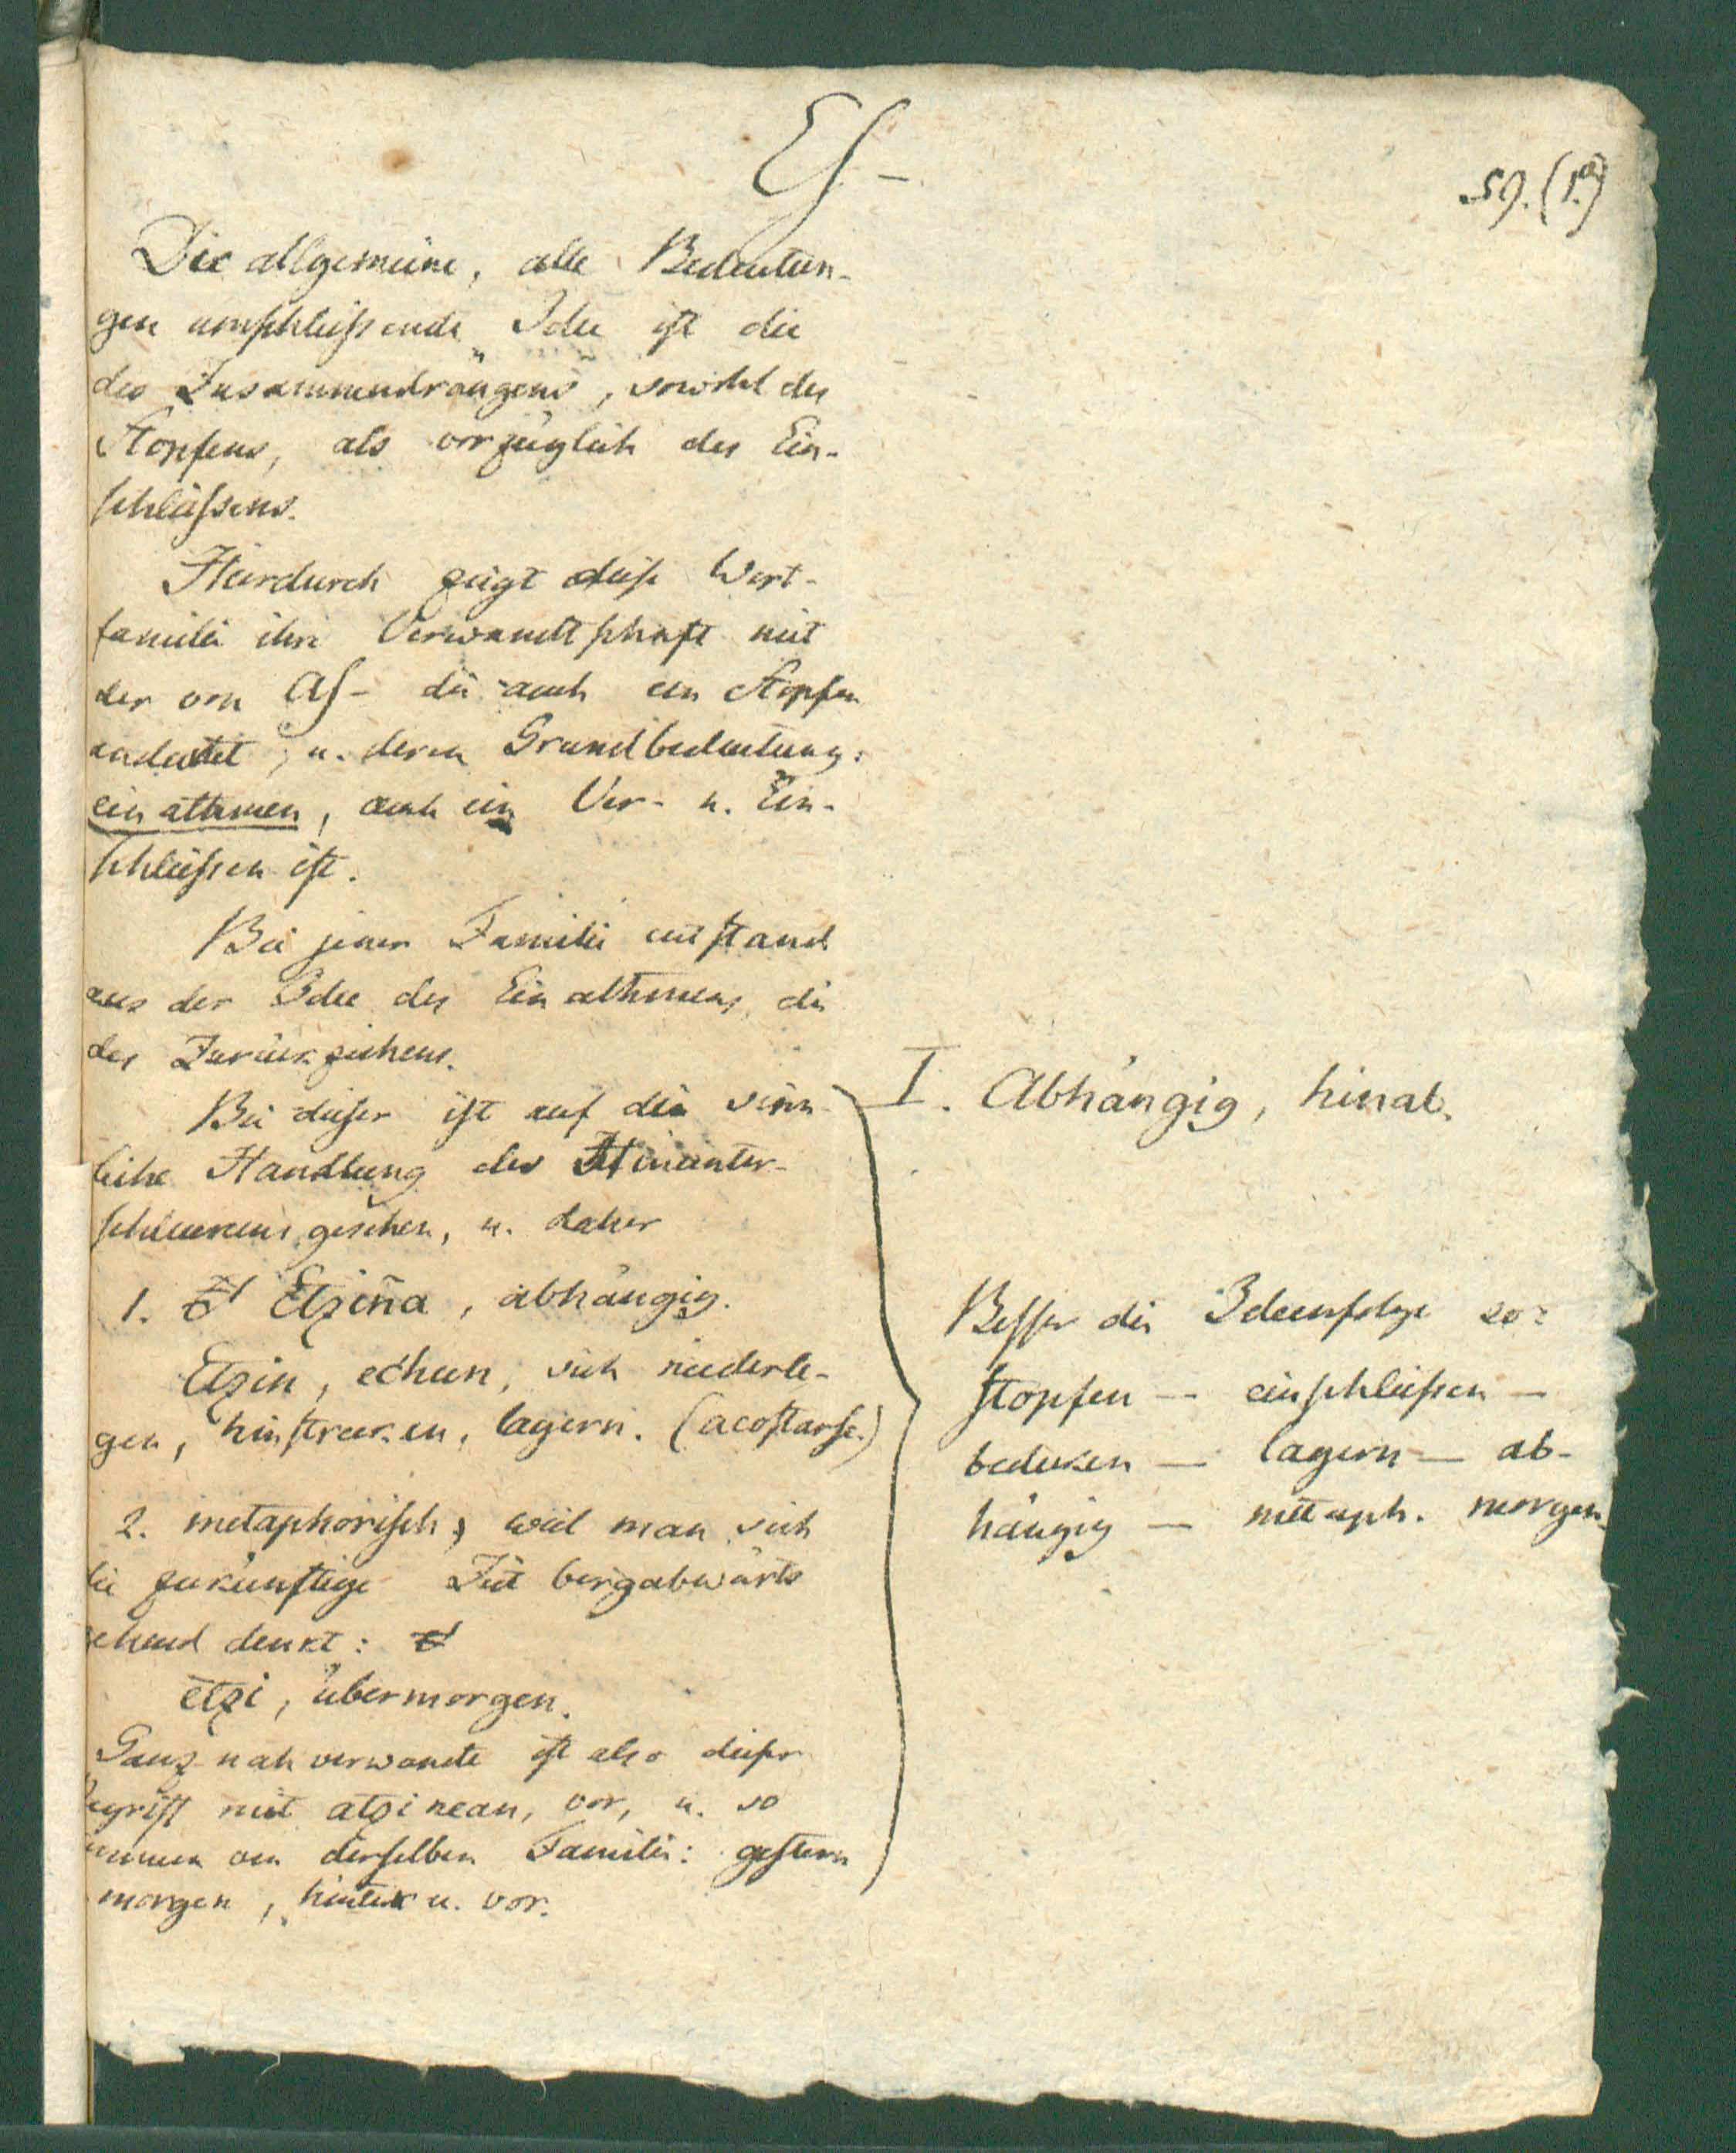 Es-
59. (1.a)
Die allgemeine, alle Bedeutun-
gen umschliessende Idee ist die
des Zusammendrängens, sowohl des
Stopfens, als vorzüglich des Ein-
schliessens.
Hierdurch zeigt diese Wort-
familie ihre Verwandtschaft mit
der von As- die auch ein Stopfen
andeutet, u. deren Grundbedeutung:
einathmen, auch ein Ver- u. Ein-
schliessen ist.
Bei jener Familie entstand
aus der Idee des Einathmens, die
des Zurückziehens.
Bei dieser ist auf die sinn-
liche Handlung des Hinunter-
schluckens gesehen, u. daher
1. Etziña, abhängig.
Etzin, echun, sich niederle-
gen, hinstrecken, lagern. (acostarse.)
2. metaphorisch, weil man sich
die zukünftige Zeit bergabwärts
gehend denkt:
etzi, übermorgen.
Ganz nah verwandt ist also dieser
Begriff mit atzinean, vor, u. so
kommen von derselben Familie: gestern
morgen, hinter u. vor.
I. Abhängig, hinab.
Besser die Ideenfolge so:
stopfen — einschliessen —
bedecken — lagern — ab-
hängig — metaph. morgen.